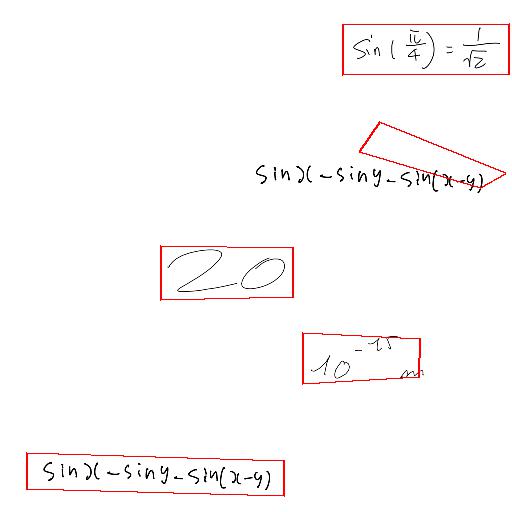 sin(π/4) = 1/√2
sinx - siny - sin(x-y)
20
10^-15 m
sinx - siny - sin(x-y)